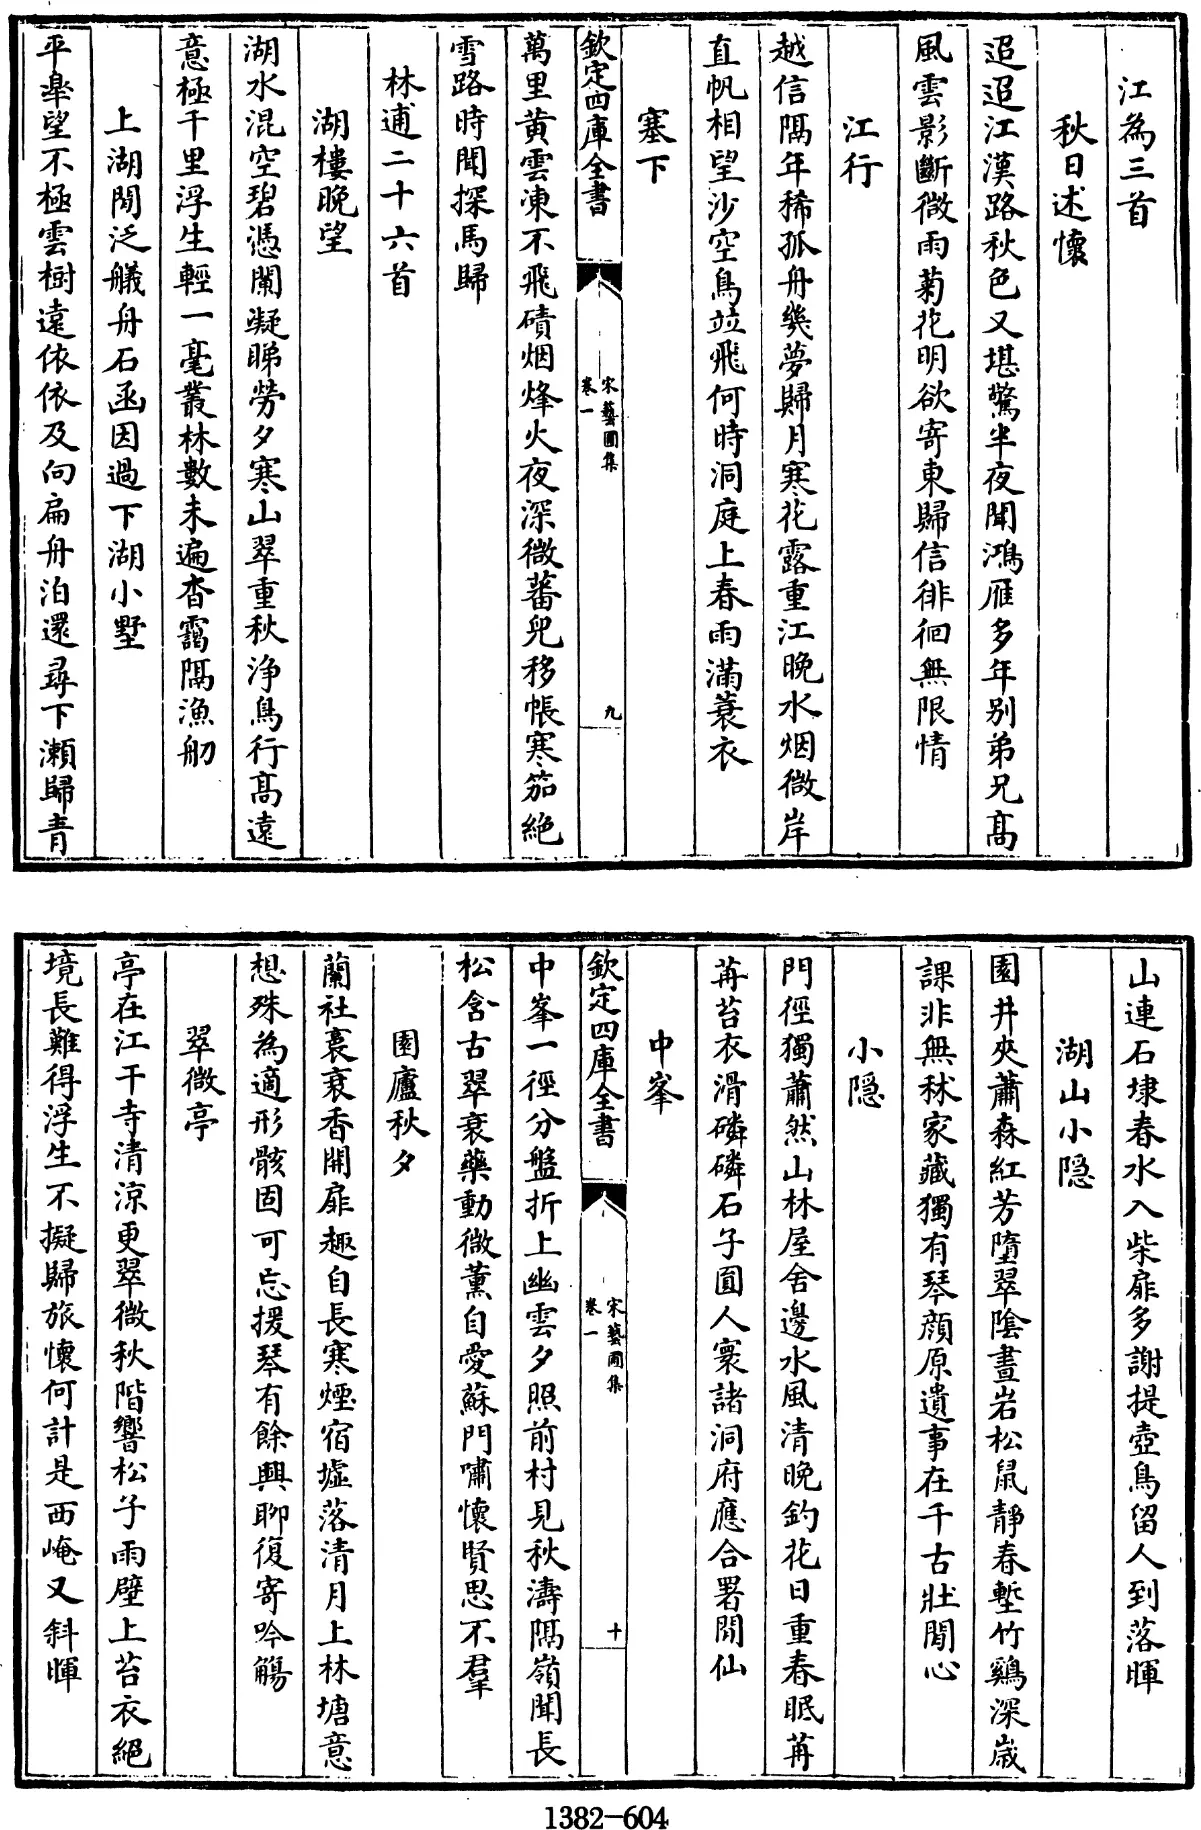 江為三首
秋日述懷
迢迢江漢路秋色又堪驚半夜聞鴻雁多年别弟兄髙
風雲影斷微雨菊花明欲寄東歸信徘徊無限情
江行
越信隔年稀孤舟幾夢歸月寒花露重江晩水烟微岸
直帆相望沙空鳥並飛何時洞庭上春雨滿蓑衣
塞下
欽定四庫全書
宋藝圃集
卷一
九
萬里黄雲凍不飛磧烟烽火夜深微蕃兒移帳寒笳絶
雪路時聞探馬歸
林逋二十六首
湖樓晩望
湖水混空碧憑闌凝睇勞夕寒山翠重秋浄鳥行髙遠
意極千里浮生輕一毫叢林數未遍杳靄隔漁舠
上湖閒泛艤舟石函因過下湖小墅
平臯望不極雲樹遠依依及向扁舟泊還尋下瀨歸青
山連石埭春水入柴扉多謝提壺鳥留人到落暉
湖山小隠
園井夾蕭森紅芳墮翠陰晝岩松鼠静春塹竹鷄深歳
課非無秫家藏獨有琴顔原遺事在千古壯閒心
小隠
門徑獨蕭然山林屋舍邊水風清晩釣花日重春眠苒
苒苔衣滑磷磷石子圓人寰諸洞府應合署閒仙
中峯
欽定四庫全書
宋藝圃集
卷一
十
中峯一徑分盤折上幽雲夕照前村見秋濤隔嶺聞長
松含古翠衰藥動微薰自愛蘇門嘯懷賢思不羣
園廬秋夕
蘭社裛衰香開扉趣自長寒煙宿墟落清月上林塘意
想殊為適形骸固可忘援琴有餘興聊復寄吟觴
翠微亭
亭在江干寺清涼更翠微秋階響松子雨壁上苔衣絶
境長難得浮生不擬歸旅懷何計是西崦又斜暉
1382-604